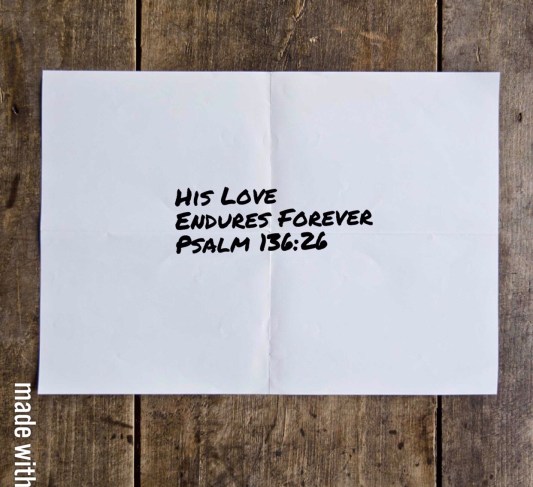 His Love
Endures Forever
Psalm 136:26
made with